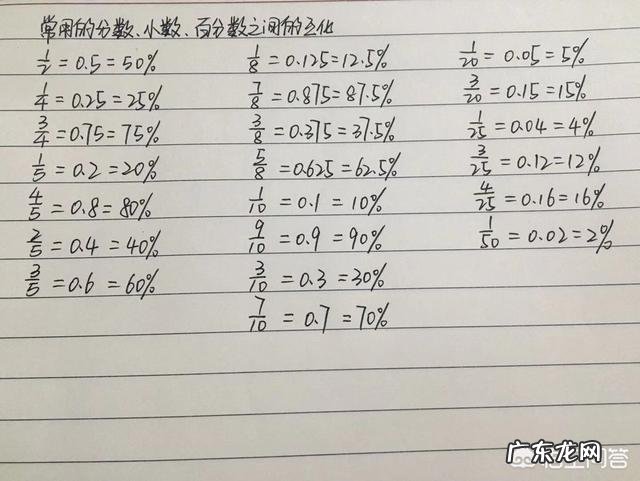 常用的分数、小数、百分数之间的互化
1/2 = 0.5 = 50%
1/4 = 0.25 = 25%
3/4 = 0.75 = 75%
1/5 = 0.2 = 20%
4/5 = 0.8 = 80%
2/5 = 0.4 = 40%
3/5 = 0.6 = 60%
1/8 = 0.125 = 12.5%
7/8 = 0.875 = 87.5%
3/8 = 0.375 = 37.5%
5/8 = 0.625 = 62.5%
1/10 = 0.1 = 10%
9/10 = 0.9 = 90%
3/10 = 0.3 = 30%
7/10 = 0.7 = 70%
1/20 = 0.05 = 5%
3/20 = 0.15 = 15%
1/25 = 0.04 = 4%
3/25 = 0.12 = 12%
4/25 = 0.16 = 16%
1/50 = 0.02 = 2%
广东龙网
问答